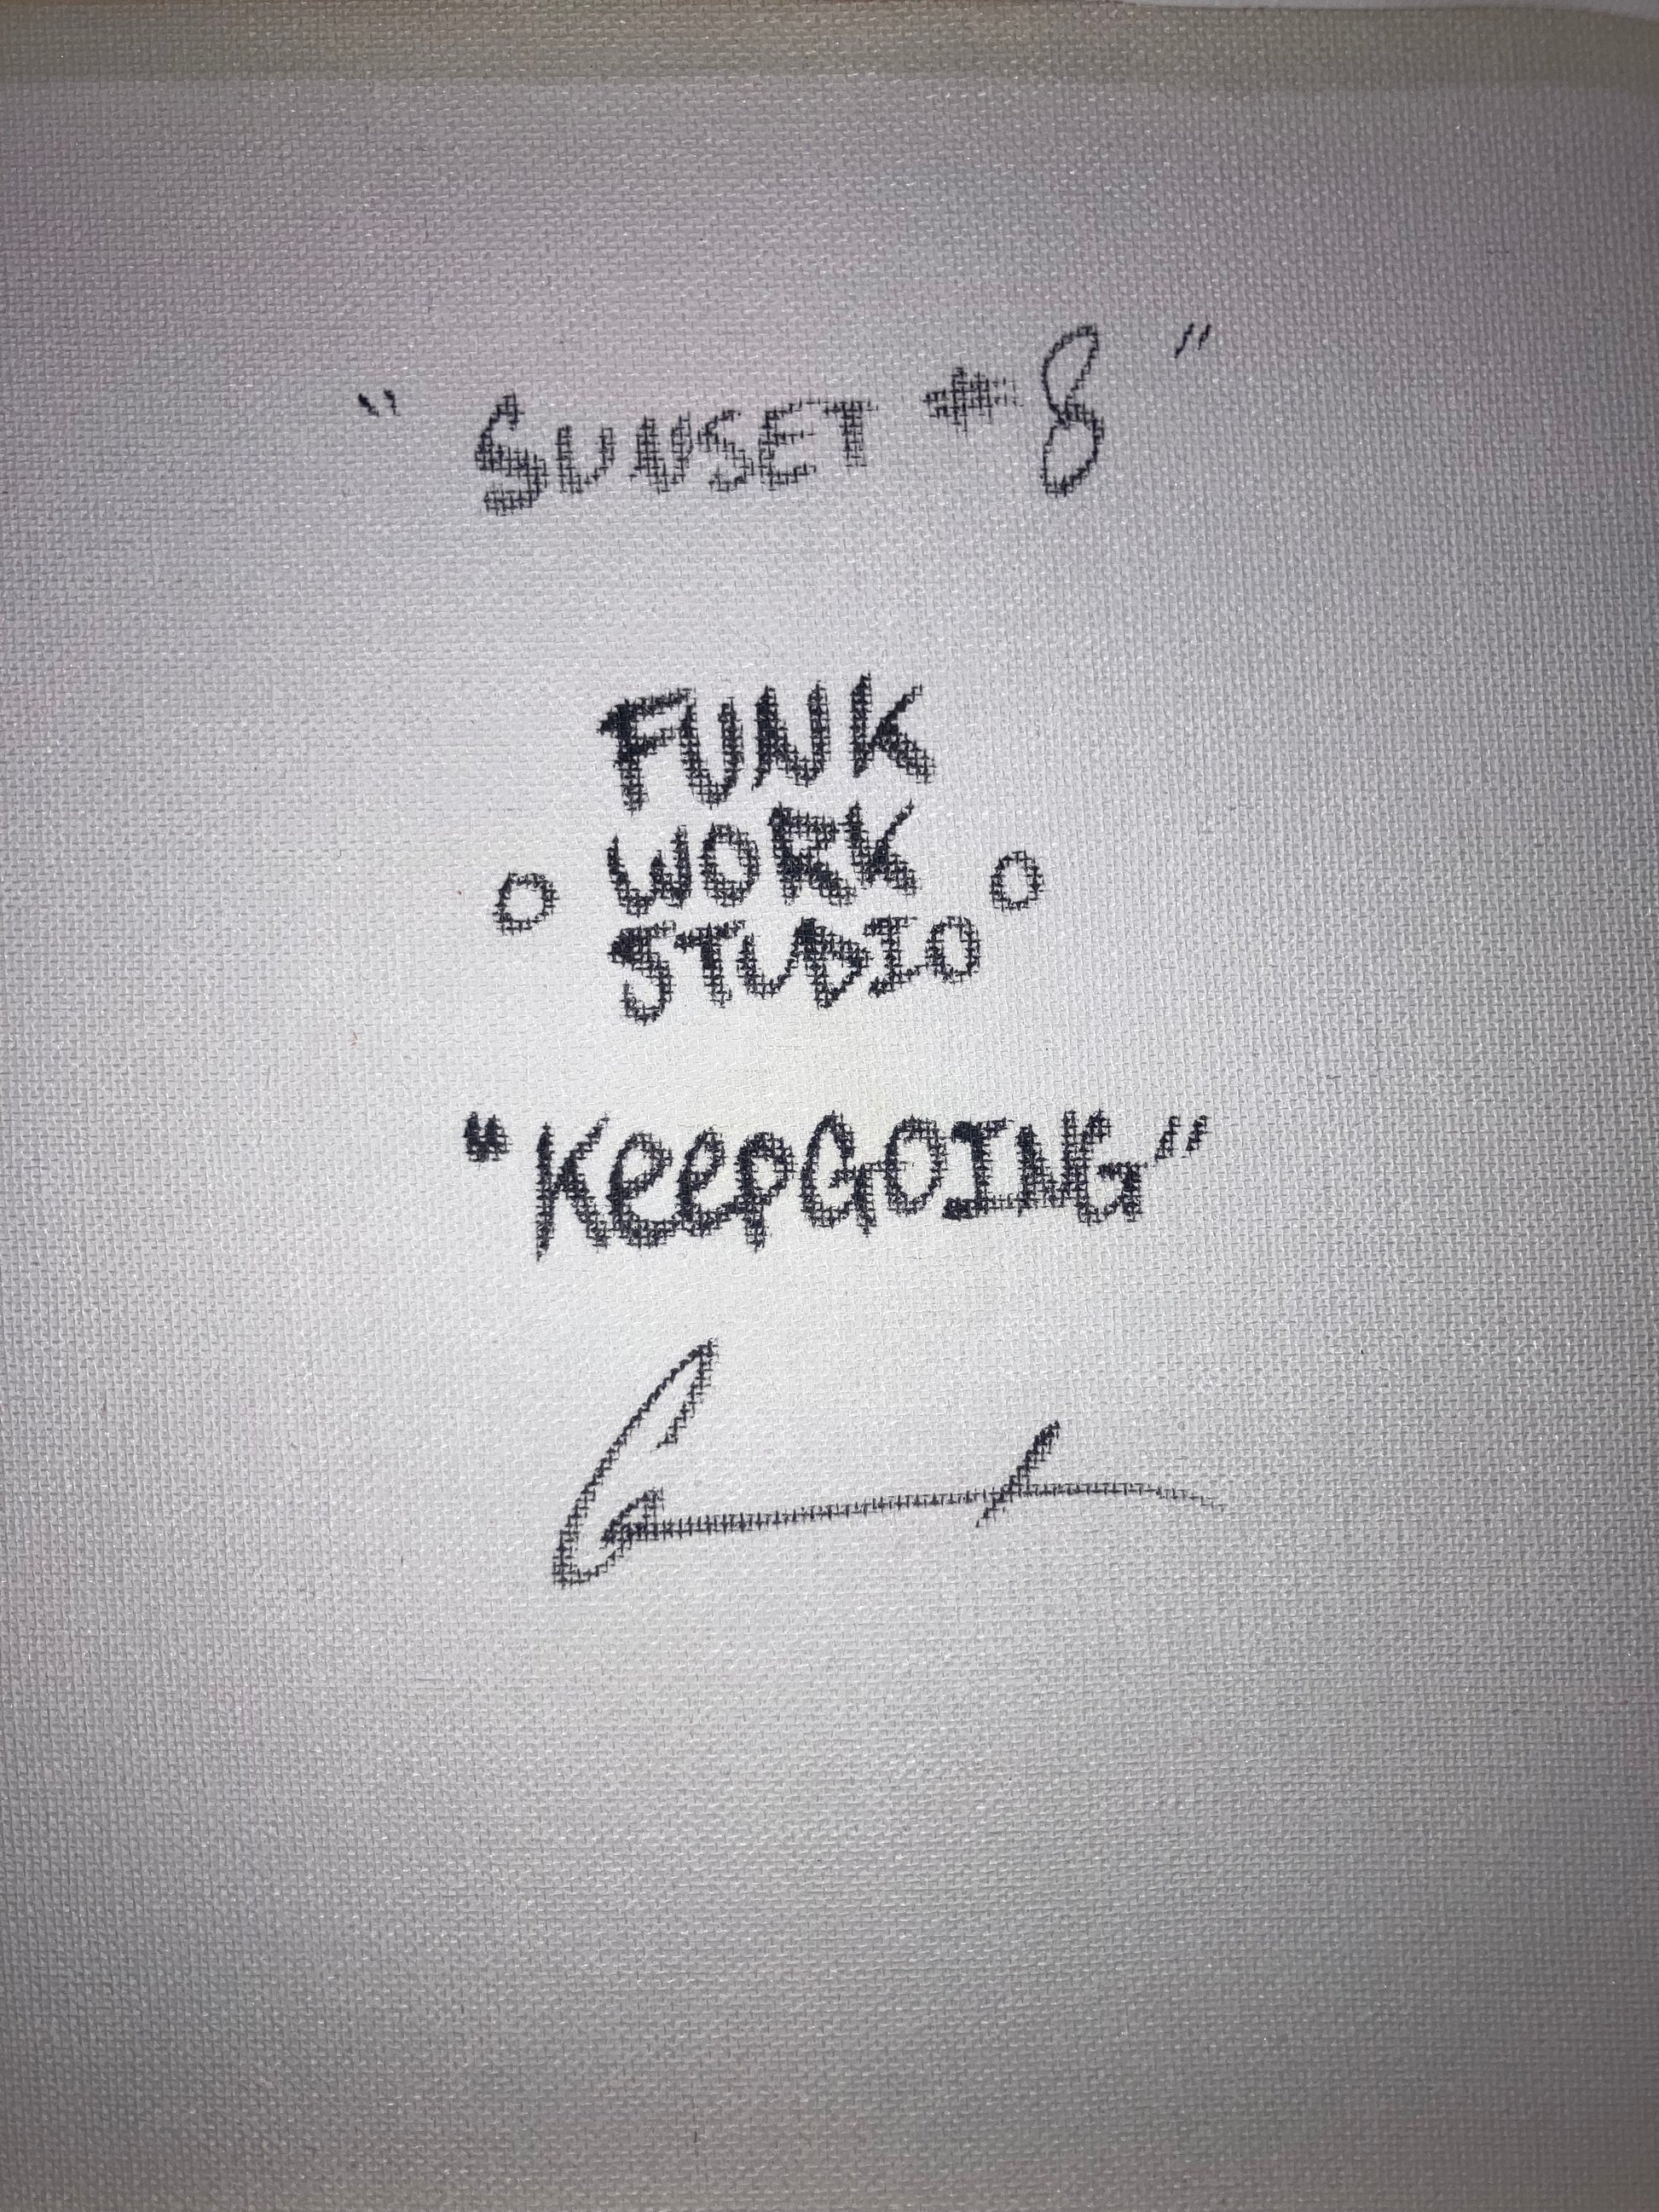 "SUNSET #8"
FUNK
WORK
STUDIO
"KeepGOING"